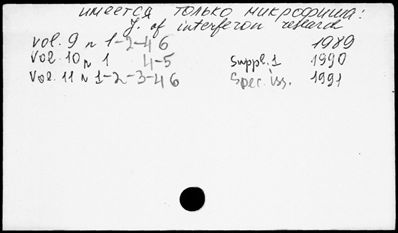 имеется только микрофиша:
J. of interferon research
vol. 9 n 1-2-4 6 1989
vol. 10 n 1 4-5 Suppl. 1 1990
Vol. 11 n 1-2-3-4 6 Spec. iss. 1991